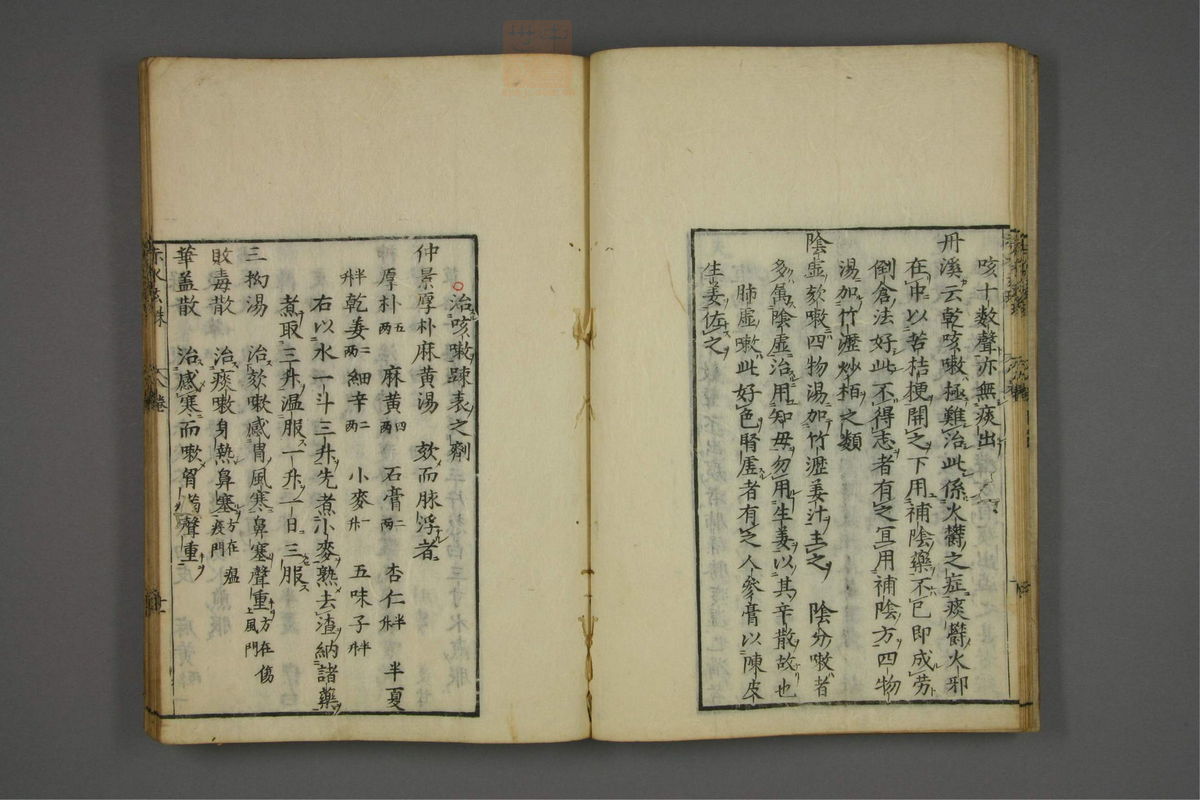 咳十數聲亦無痰出
丹溪云乾咳嗽極難治此係火欝之症痰欝火邪
在中以苦桔梗開之下用補陰藥不已即成劳
倒倉法好此不得志者有之宜用補陰方四物
湯加竹瀝炒栢之類
陰虛欬嗽四物湯加竹瀝姜汁主之　陰分嗽者
多属陰虛治用知母勿用生姜以其辛散故也
肺虛嗽此好色腎虛者有之人參膏以陳皮
生姜佐之
治咳嗽踈表之劑
仲景厚朴麻黃湯　欬而脉浮者
厚朴五兩　麻黃四兩　石膏二兩　杏仁半升　半夏
半升　乾姜二兩　細辛二兩　小麥一升　五味子半升
右以水一斗三升先煮小麥熟去渣納諸藥
煮取三升温服一升一日三服
三拗湯　治欬嗽感胃風寒鼻塞聲重方在傷風門上
敗毒散　治痰嗽身熱鼻塞方在瘟疫門
華盖散　治感寒而嗽胷滿聲重
赤水玄珠　八卷